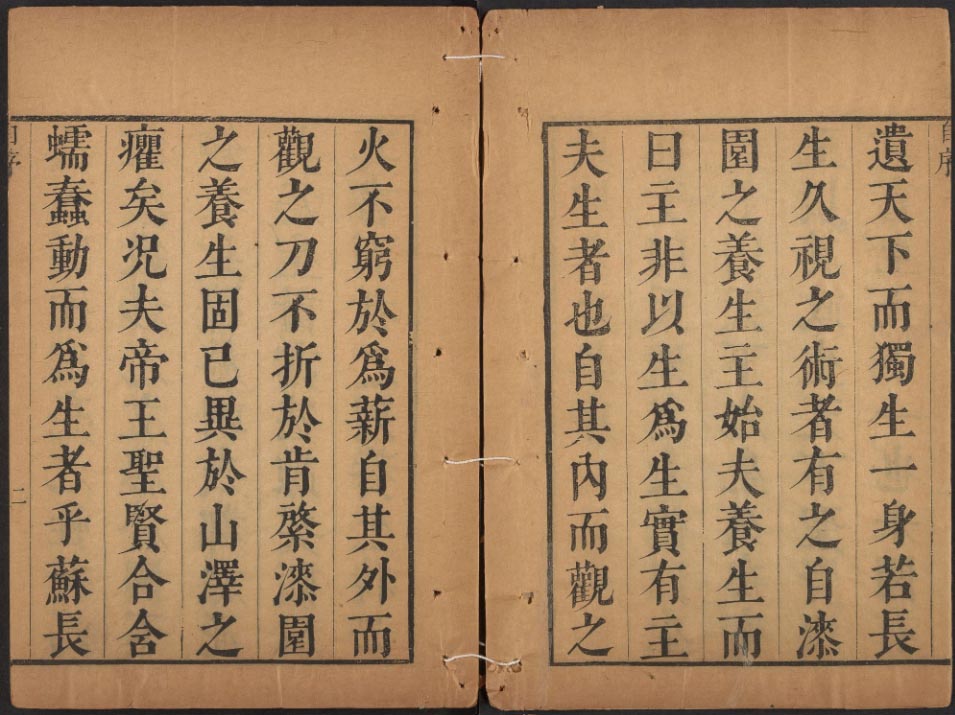 遺天下而獨生一身若長
生久視之術者有之自漆
園之養生主始夫養生而
曰主非以生爲生實有主
夫生者也自其內而觀之
火不窮於爲薪自其外而
觀之刀不折於肯綮漆園
之養生固已異於山澤之
癯矣况夫帝王聖賢合舍
蠕蠢動而爲生者乎蘇長
二